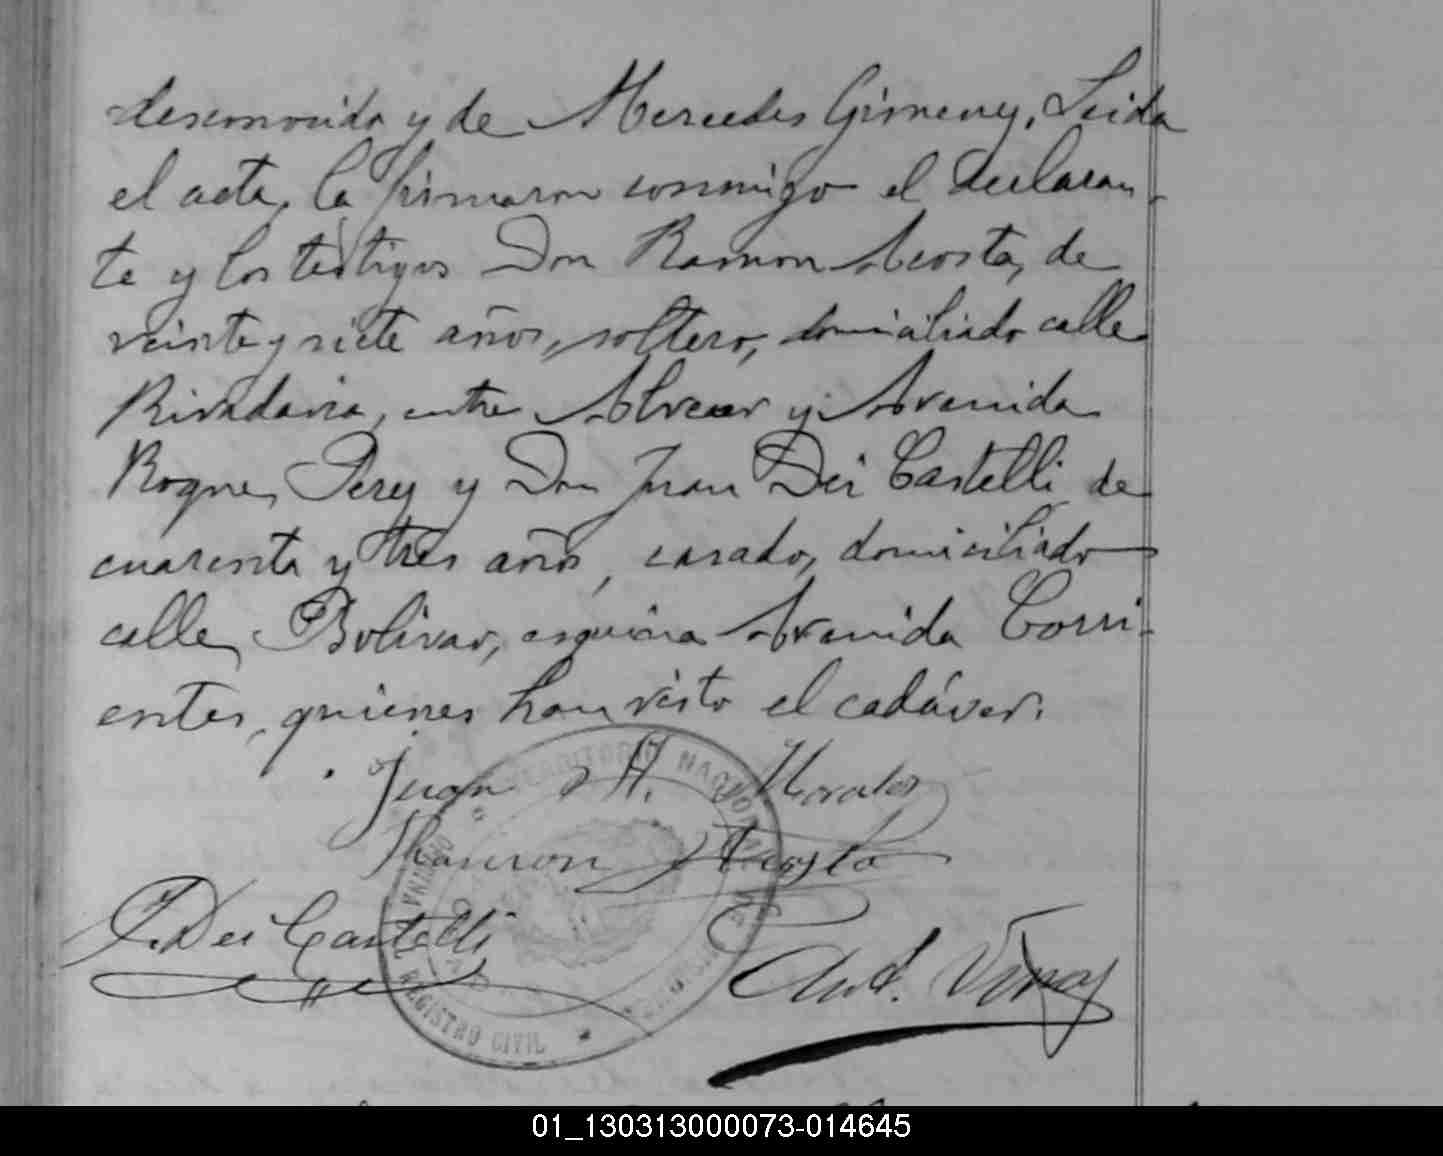 desconocido y de Mercedes Gimenez. Leida
el acta, la firmaron conmigo el declaran-
te y los testigos Don Ramon Acosta, de
veinte y siete años, soltero, domiciliado calle
Rivadavia, entre Alvear y Avenida
Roque Perez y Don Juan Dei Castelli de
cuarenta y tres años, casado, domiciliado
calle Bolivar, esquina Avenida Corri-
entes, quienes han visto el cadáver.
Juan A. Morales
Ramon Acosta
J. Dei Castelli
TERRITORIO NACIONAL
REGISTRO CIVIL
01_130313000073-014645